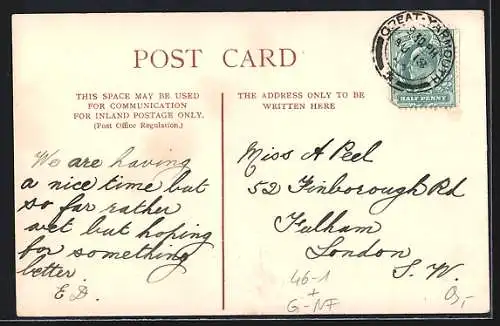 POST CARD
THIS SPACE MAY BE USED
FOR COMMUNICATION
FOR INLAND POSTAGE ONLY.
(Post Office Regulation.)
THE ADDRESS ONLY TO BE
WRITTEN HERE
GREAT-YARMOUTH
HALF PENNY
We are having
a nice time but
so far rather
wet but hoping
for something
better.
E D.
Miss A Peel
52 Finborough Rd
Fulham
London
S. W.
46-1
+
G-NF